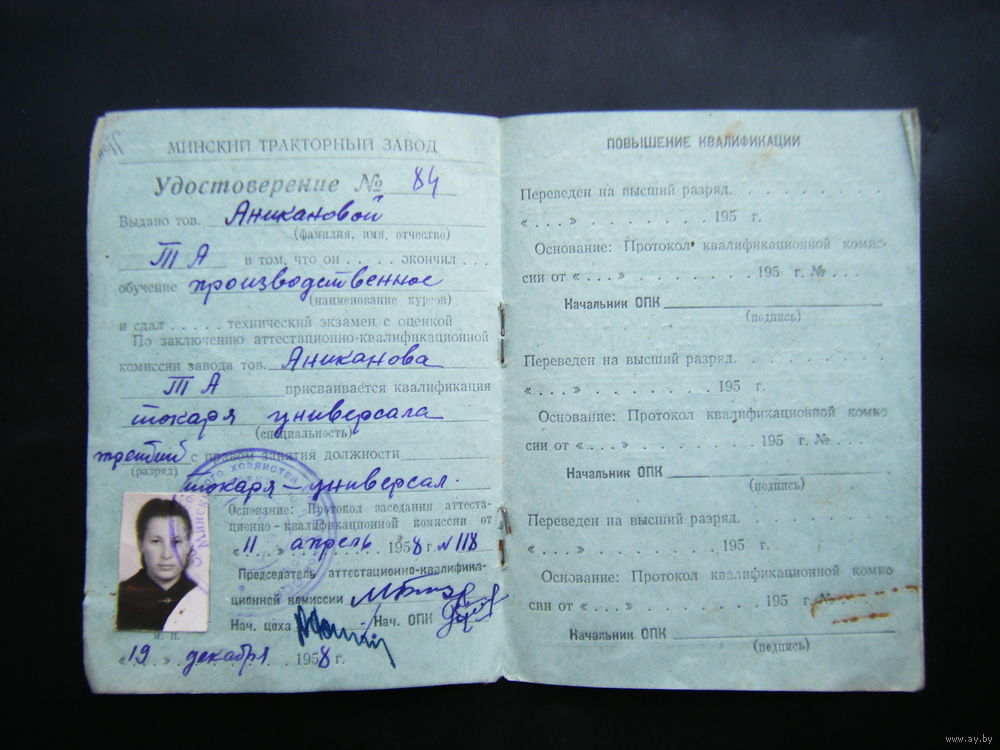 МИНСКИЙ ТРАКТОРНЫЙ ЗАВОД
Удостоверение № 84
Выдано тов. Аникановой
(фамилия, имя, отчество)
Т А в том, что он . . . . . окончил . . .
обучение производственное
(наименование курсов)
и сдал . . . . . технический экзамен с оценкой
По заключению аттестационно-квалификационной
комиссии завода тов. Аниканова
Т А присваивается квалификация
токаря универсала
(специальность)
третий с правом занятия должности
(разряд)
токаря-универсал.
Основание: Протокол заседания аттеста-
ционно-квалификационной комиссии от
«11» апрель 1958 г. № 118
Председатель аттестационно-квалифика-
ционной комиссии
Нач. цеха Нач. ОПК
М. П.
«19» декабря 1958 г.
ПОВЫШЕНИЕ КВАЛИФИКАЦИИ
Переведен на высший разряд. . . . . . . . .
« . . . » . . . . . . . 195 г.
Основание: Протокол квалификационной комис-
сии от « . . . » . . . . . . . 195 г. № . . .
Начальник ОПК
(подпись)
Переведен на высший разряд. . . . . . . . .
« . . . » . . . . . . . 195 г.
Основание: Протокол квалификационной комис-
сии от « . . . » . . . . . . . 195 г. № . . .
Начальник ОПК
(подпись)
Переведен на высший разряд. . . . . . . . .
« . . . » . . . . . . . 195 г.
Основание: Протокол квалификационной комис-
сии от « . . . » . . . . . . . 195 г. № . . .
Начальник ОПК
(подпись)
www.ay.by